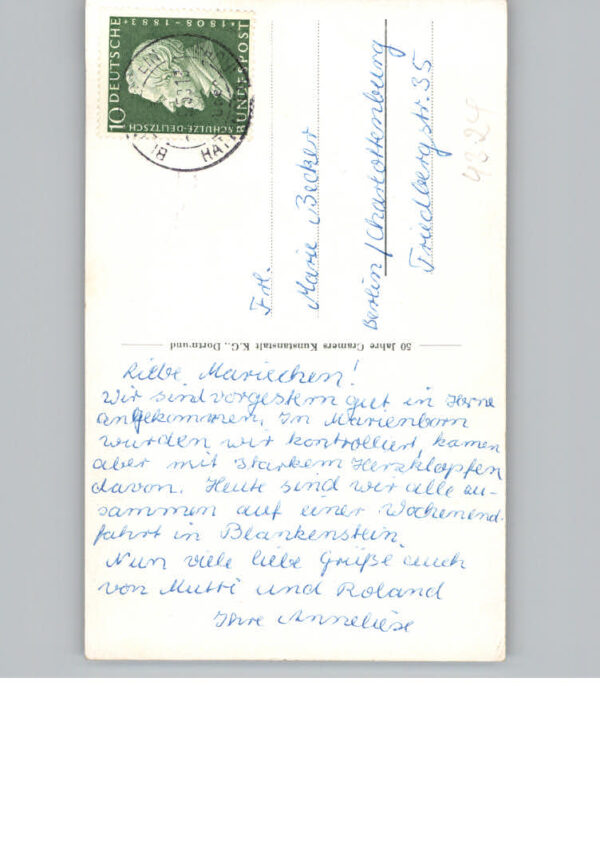 Liebe Mariechen!
Wir sind vorgestern gut in Herne
angekommen. In Marienborn
wurden wir kontrolliert, kamen
aber mit starkem Herzklopfen
davon. Heute sind wir alle zu-
sammen auf einer Wochenend-
fahrt in Blankenstein.
Nun viele liebe Grüße auch
von Mutti und Roland
Ihre Anneliese
50 Jahre Cramers Kunstanstalt K.G., Dortmund
Frl.
Marie Becker
Berlin/Charlottenburg
Friedbergstr. 35
4324
10 DEUTSCHE
BUNDESPOST
SCHULZE-DELITZSCH
*1808-1883+